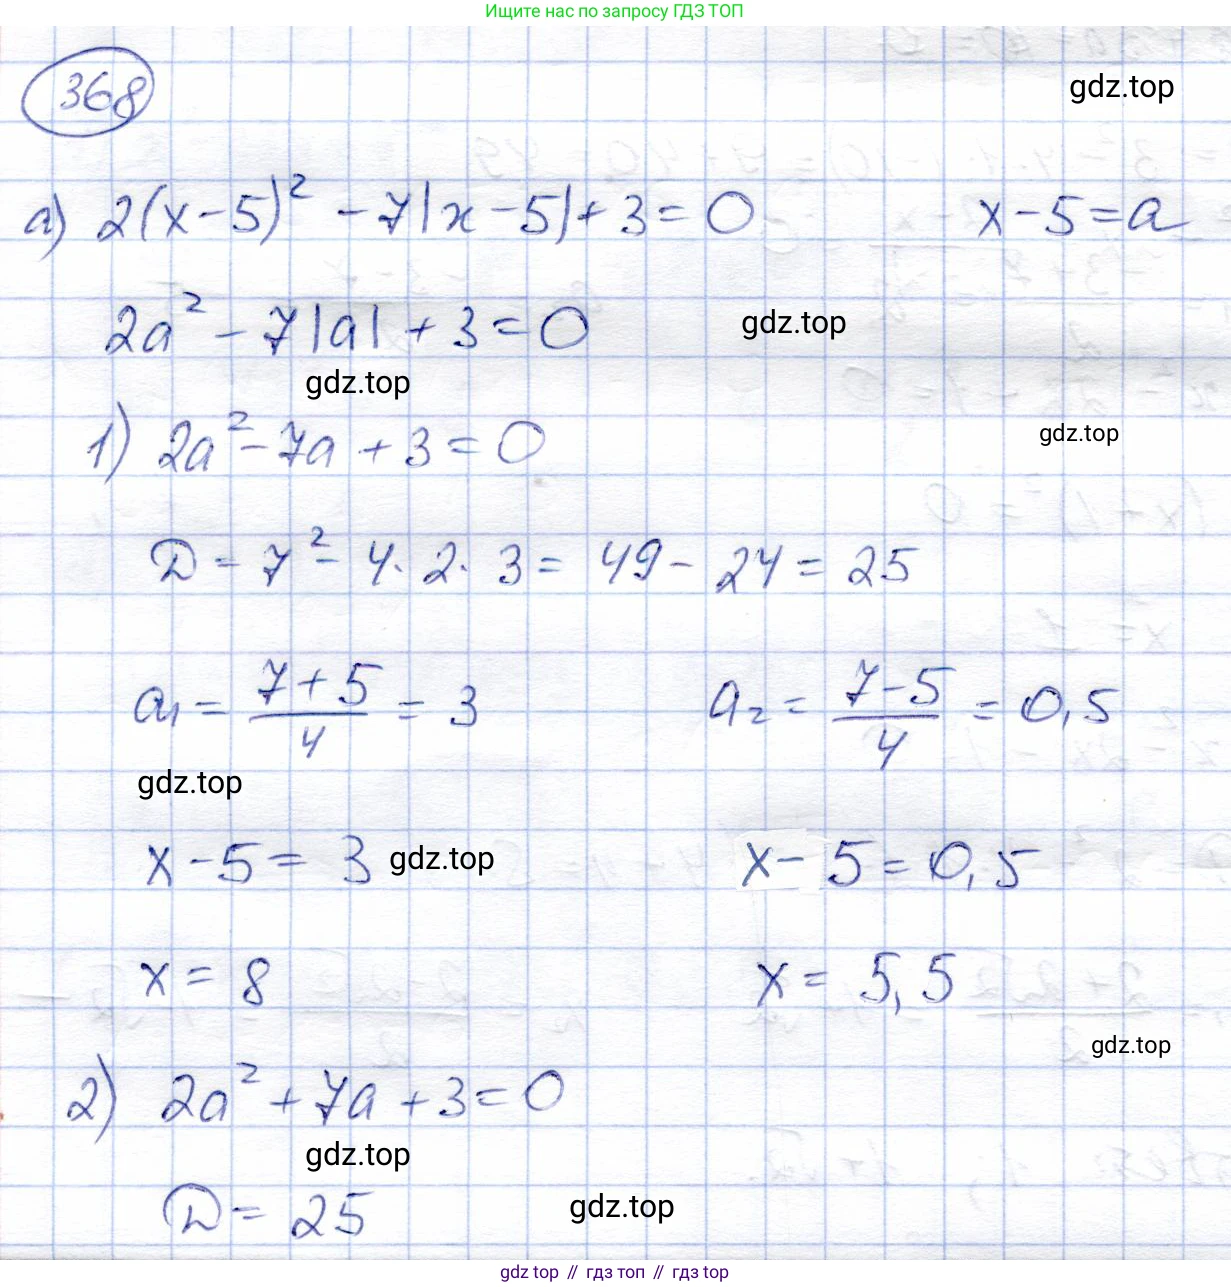 Ищите нас по запросу ГДЗ ТОП
368
gdz.top
а) 2(x-5)² - 7|x-5| + 3 = 0    x-5=a
2a² - 7|a| + 3 = 0
gdz.top
gdz.top
1) 2a² - 7a + 3 = 0
gdz.top
D = 7² - 4·2·3 = 49 - 24 = 25
a₁ = (7+5)/4 = 3    a₂ = (7-5)/4 = 0,5
gdz.top
x - 5 = 3    gdz.top    x - 5 = 0,5
x = 8    x = 5,5
gdz.top
2) 2a² + 7a + 3 = 0
gdz.top
D = 25
gdz.top
gdz top // гдз топ // гдз top